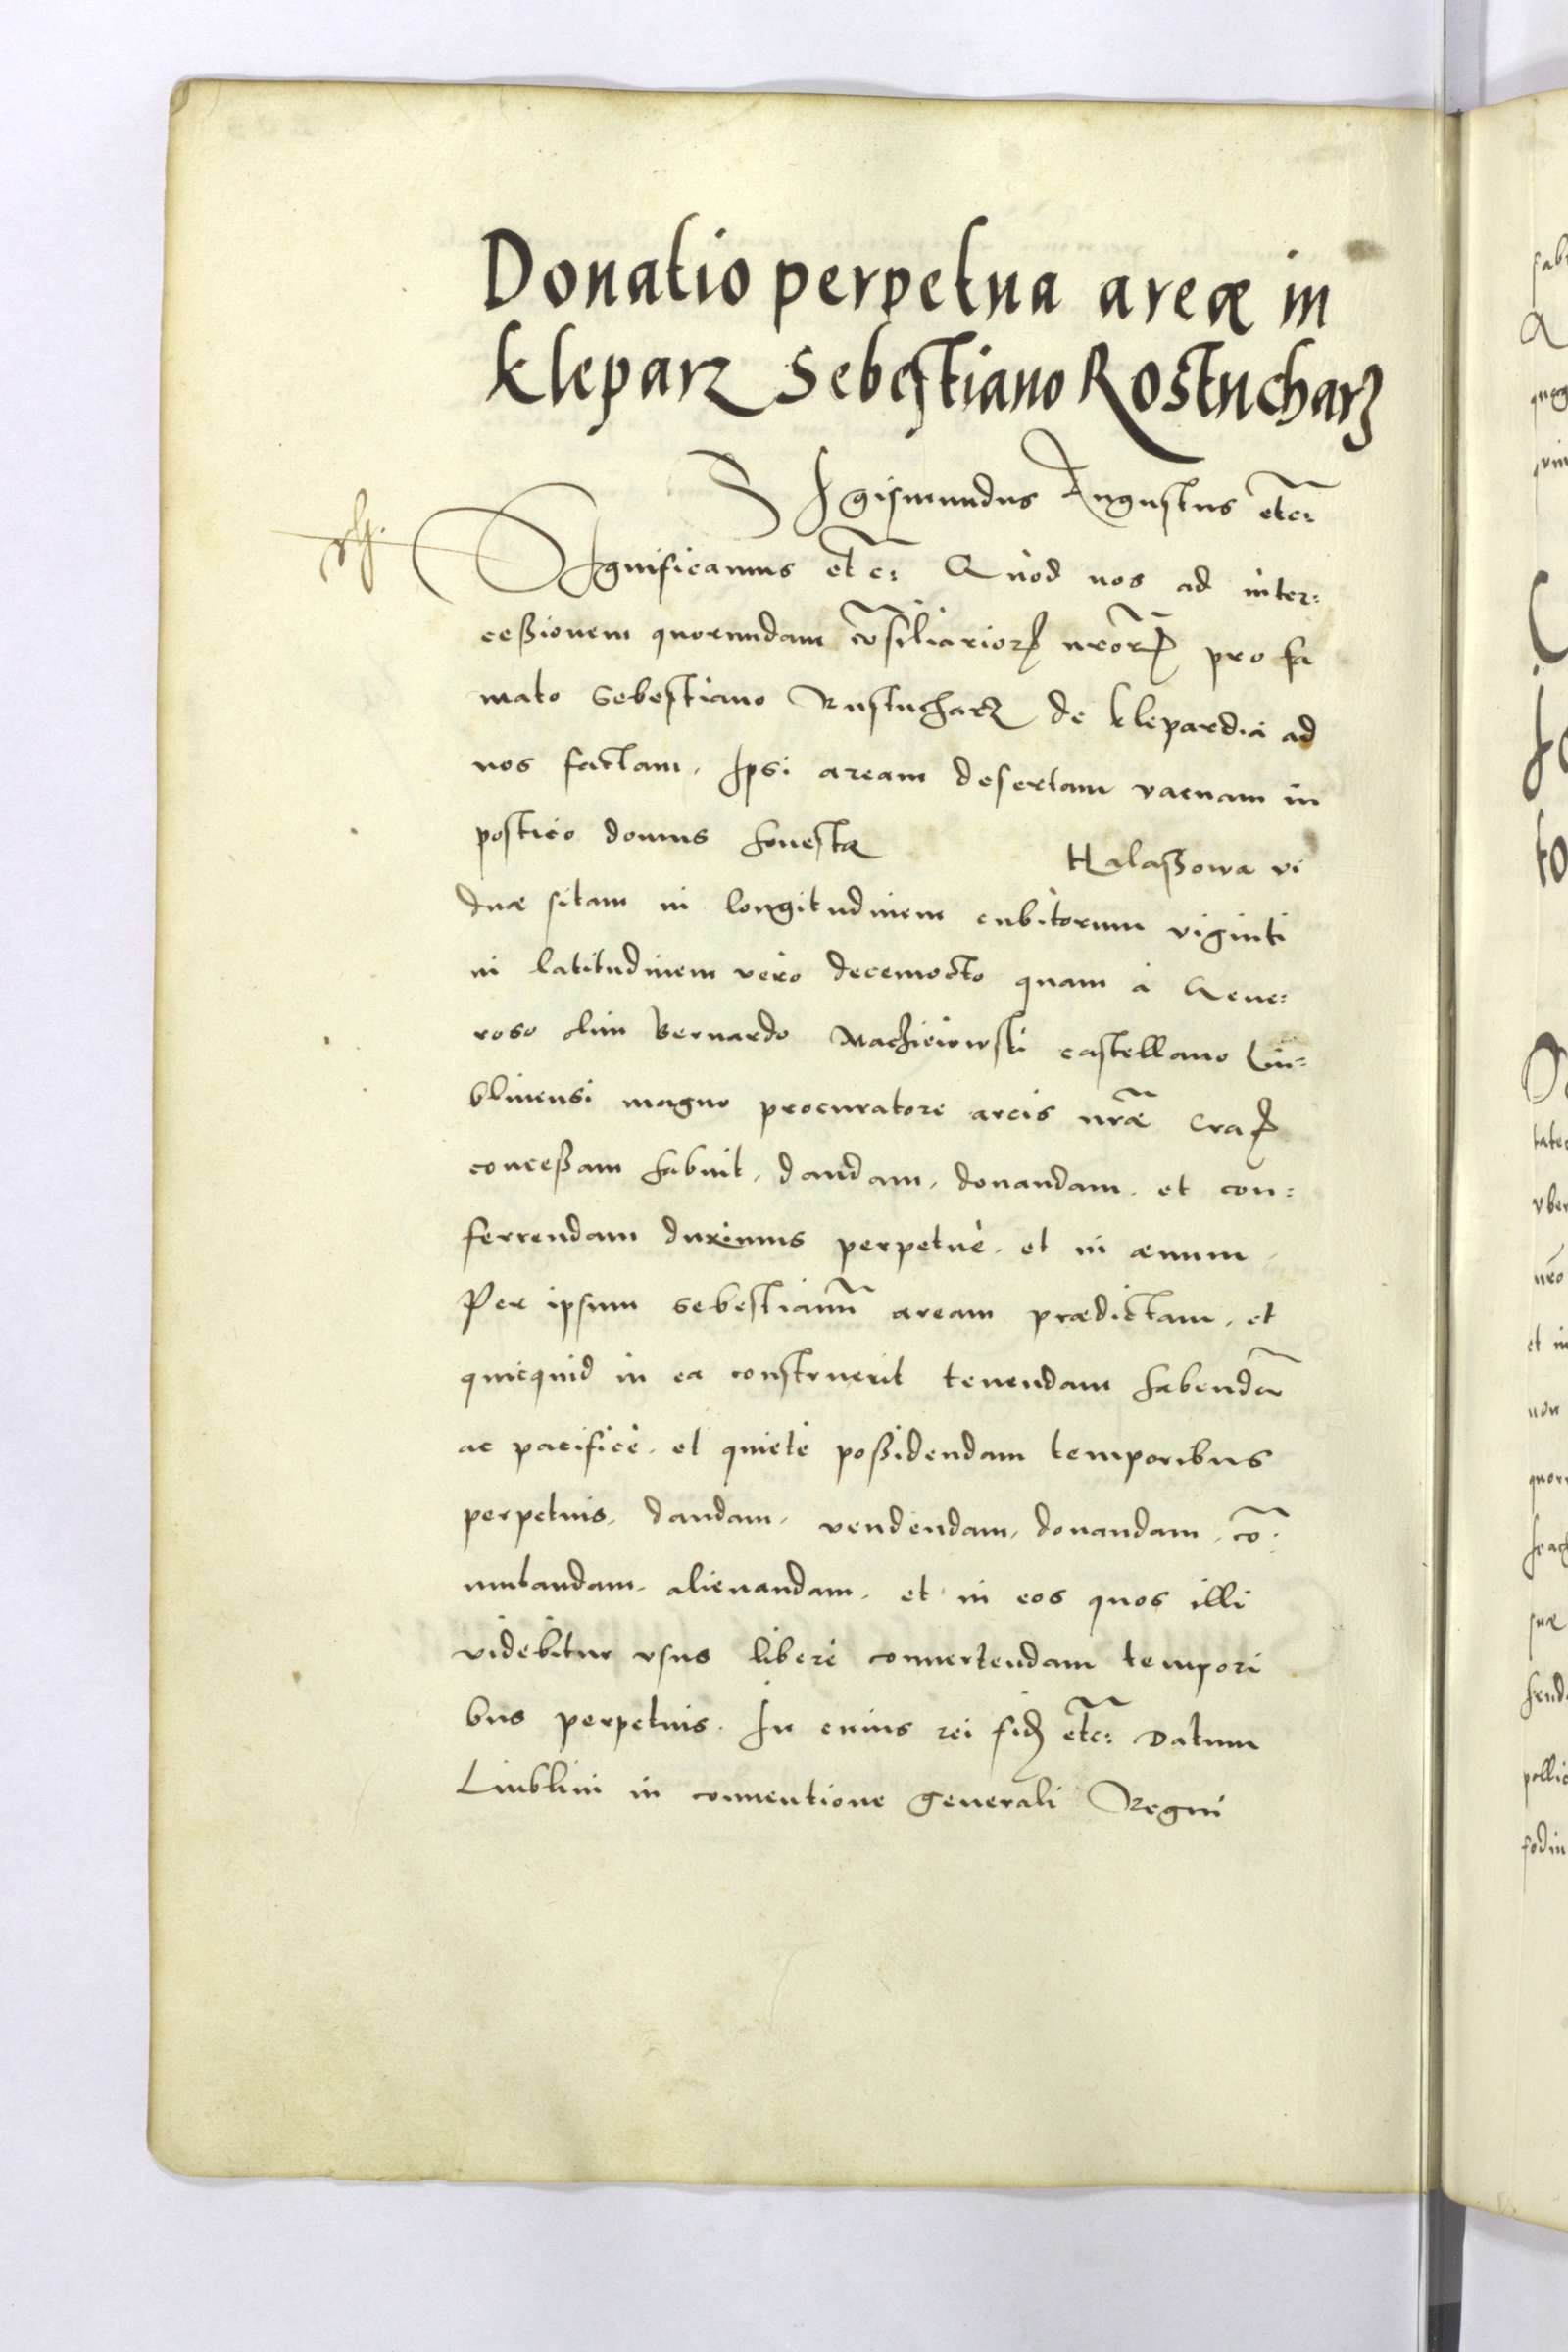 Donatio perpetua areæ in
kleparz Sebestiano Rostucharz
SIgismundus Augustus etc:
SIgnificamus etc: Quod nos ad inter:
ceßionem quorundam cõsiliarioꝝ nr̃orꝝ pro fa
mato Sebestiano Rustucharz de klepardia ad
nos factam, Ipsi aream desertam vacuam in
postico domus honestæ Halaßowa vi
duæ sitam in longitudinem cubitorum viginti
in latitudinem vero decemocto quam à Gene:
roso olim Bernardo Machieiowski castellano Liu:
blinensi magno procuratore arcis nr̃æ Craꝝ
conceßam habuit, dandam, donandam, et con:
ferrendam duximus perpetuè, et in æuum,
Per ipsum Sebestianũ aream prædictam, et
quicquid in ea construerit tenendam habendã
ac pacificè, et quietè poßidendam temporibus
perpetuis, dandam, vendendam, donandam, cõ:
mutandam, alienandam, et in eos quos illi
videbitur vsus liberè conuertendam tempori
bus perpetuis. In cuius rei fidꝫ etc: Datum
Liublini in conuentione generali Regni